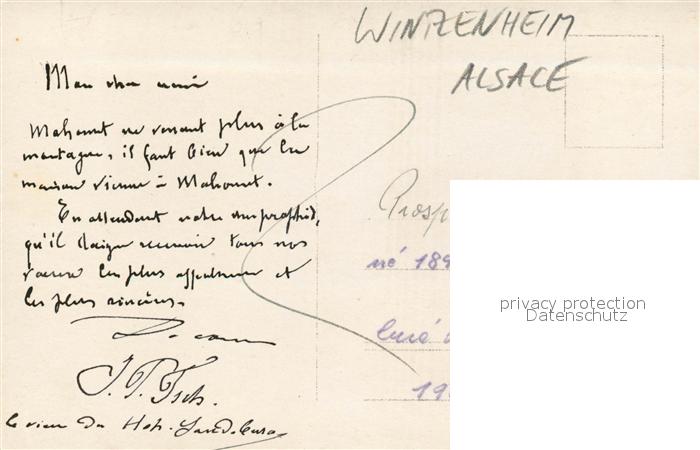 WINTZENHEIM
ALSACE
Mon cher ami
Mahomet ne venant plus à la
montagne, il faut bien que la
maison vienne à Mahomet.
En attendant notre
qu'il daigne recevoir tous nos
vœux les plus affectueux et
les plus sincères.
Prosp
né 189
Curé
19
J. P. Tsch.
le vieux du Hoh-Landsburg
privacy protection
Datenschutz